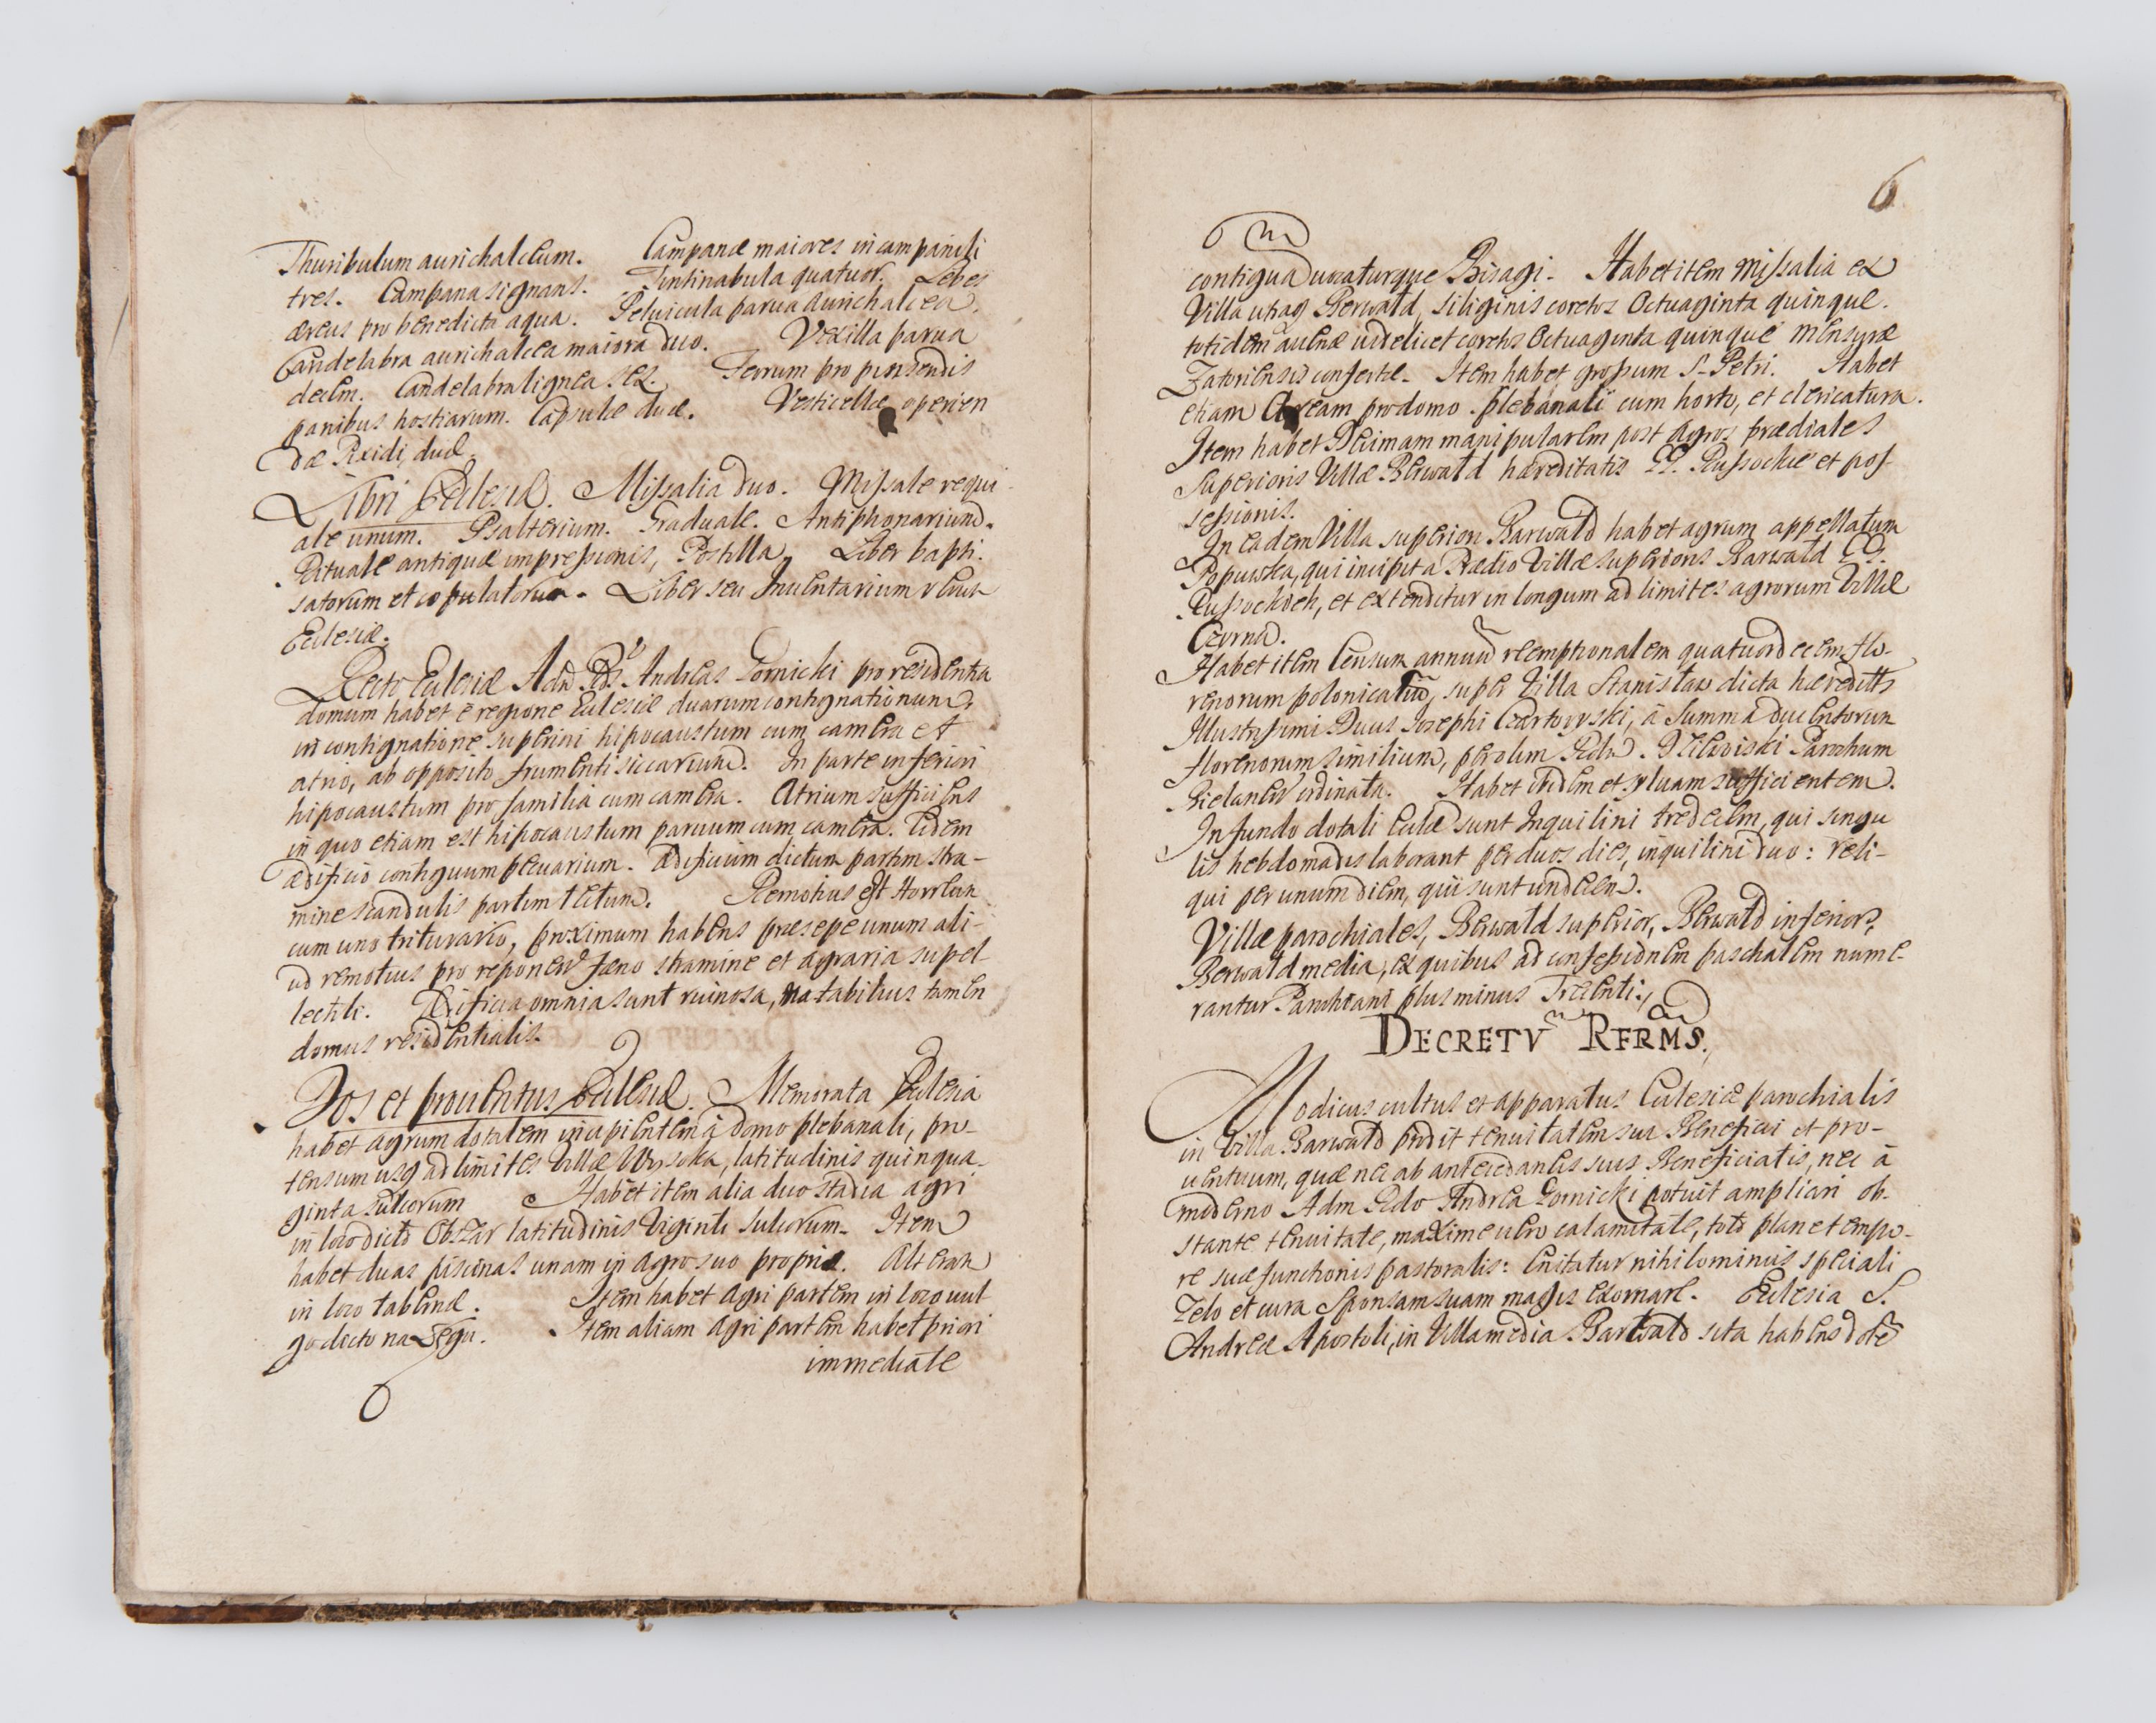 Thuribulum aurichalceum. Campanæ maiores in campanili
tres. Campana signans. Tintinabula quatuor. Lebes
æreus pro benedicta aqua. Peluicula parua aurichalcea.
Candelabra aurichalcea maiora duo. Vexilla parua
decem. Candelabra lignea sex. Ferrum pro pinsendis
panibus hostiarum. Capsulæ duæ. Vesticellæ operien
dæ Pixidi, duæ.
Libri Ecclesiæ. Missalia duo. Missale requi
ale unum. Psalterium. Graduale. Antiphonarium.
Rituale antiquæ impressionis, Postilla, Liber bapti-
satorum et copulatorum. Liber seu Inuentarium
Ecclesiæ.
Rector Ecclesiæ Adm Rds Andreas Gornicki pro residentia
domum habet e regione Ecclesiæ duarum contignationum,
in contignatione superiori hipocaustum cum camera et
atrio, ab opposito frumenti siccarium. In parte inferiori
hipocaustum pro familia cum camera. Atrium sufficiens
in quo etiam est hipocaustum paruum cum camera. Eidem
ædificio contiguum pecuarium. Ædificium dictum partim stra-
mine scandulis partim tectum. Remotius est Horreum
cum uno triturario, proximum habens præsepe unum ali-
ud remotius pro reponen fæno stramine et agraria supel
lectili. Ædificia omnia sunt ruinosa, notabilius tamen
domus residentialis.
Dos et prouentus Ecclesiæ. Memorata Ecclesia
habet agrum dotalem incipientem à domo plebanali, pro-
tensum usq ad limites Villæ Wysoka, latitudinis quinqua-
ginta sulcorum Habet item alia duo stadia agri
in loco dicto Obszar latitudinis viginti sulcorum. Item
habet duas piscinas unam in agro suo proprio. Alteram
in loco tabernæ. Item habet agri partem in loco uul
go dicto na Łęgu. Item aliam agri partem habet priori
immediate
6
contigua uocaturque Bisagi. Habet item missalia ex
Villa utraq Berwald, siliginis coretos octuaginta quinque.
totidem auenæ uidelicet coretos octuaginta quinque mensuræ
Zatoriensis confertæ. Item habet grossum S. Petri. Habet
etiam Aream pro domo plebanali cum horto, et clericatura.
Item habet Decimam manipularem post agros prædiales
Superioris Villæ Berwald hæreditatis GG. Russockie et pos-
sessionis.
In eadem Villa superiori Barwald habet agrum appellatum
Popuwska, qui incipit a Prædio Villæ superioris Barwald GG.
Russockich, et extenditur in longum ad limites agrorum Villæ
Czerna.
Habet item Censum annuum reemptionalem quatuordecem flo-
renorum polonicaliu, super Villa Stanisław dicta hæreditts
Illustrissimi Ducis Josephi Czartoryski, à Summa ducentorum
florenorum similium, per olim Rdu Parochum
ordinata. Habet itidem et syluam sufficientem.
In fundo dotali Eccliæ sunt Inquilini tredecem, qui singu
lis hebdomadis laborant per duos dies, inquilini duo: reli-
qui per unum diem, qui sunt undecem.
Villæ parochiales, Berwald superior, Berwald inferior,
Berwald media, ex quibus ad confessionem paschalem nume-
rantur Parochiani plus minus Trecenti.
DECRETV RFRMS.
Modicus cultus et apparatus Ecclesiæ parochialis
in Villa Barwald prodit tenuitatem sui Beneficii et pro-
uentuum, quæ nec ab antecedaneis suis Beneficiatis, nec à
moderno Adm Rdo Andrea Gornicki potuit ampliari ob-
stante tenuitate, maxime uero calamitate, toto plane tempo-
re suæ functionis pastoralis: Enitatur nihilominus speciali
Zelo et cura Sponsam suam magis exornare. Ecclesia S.
Andreæ Apostoli, in Villa media Barwald sita habens dote